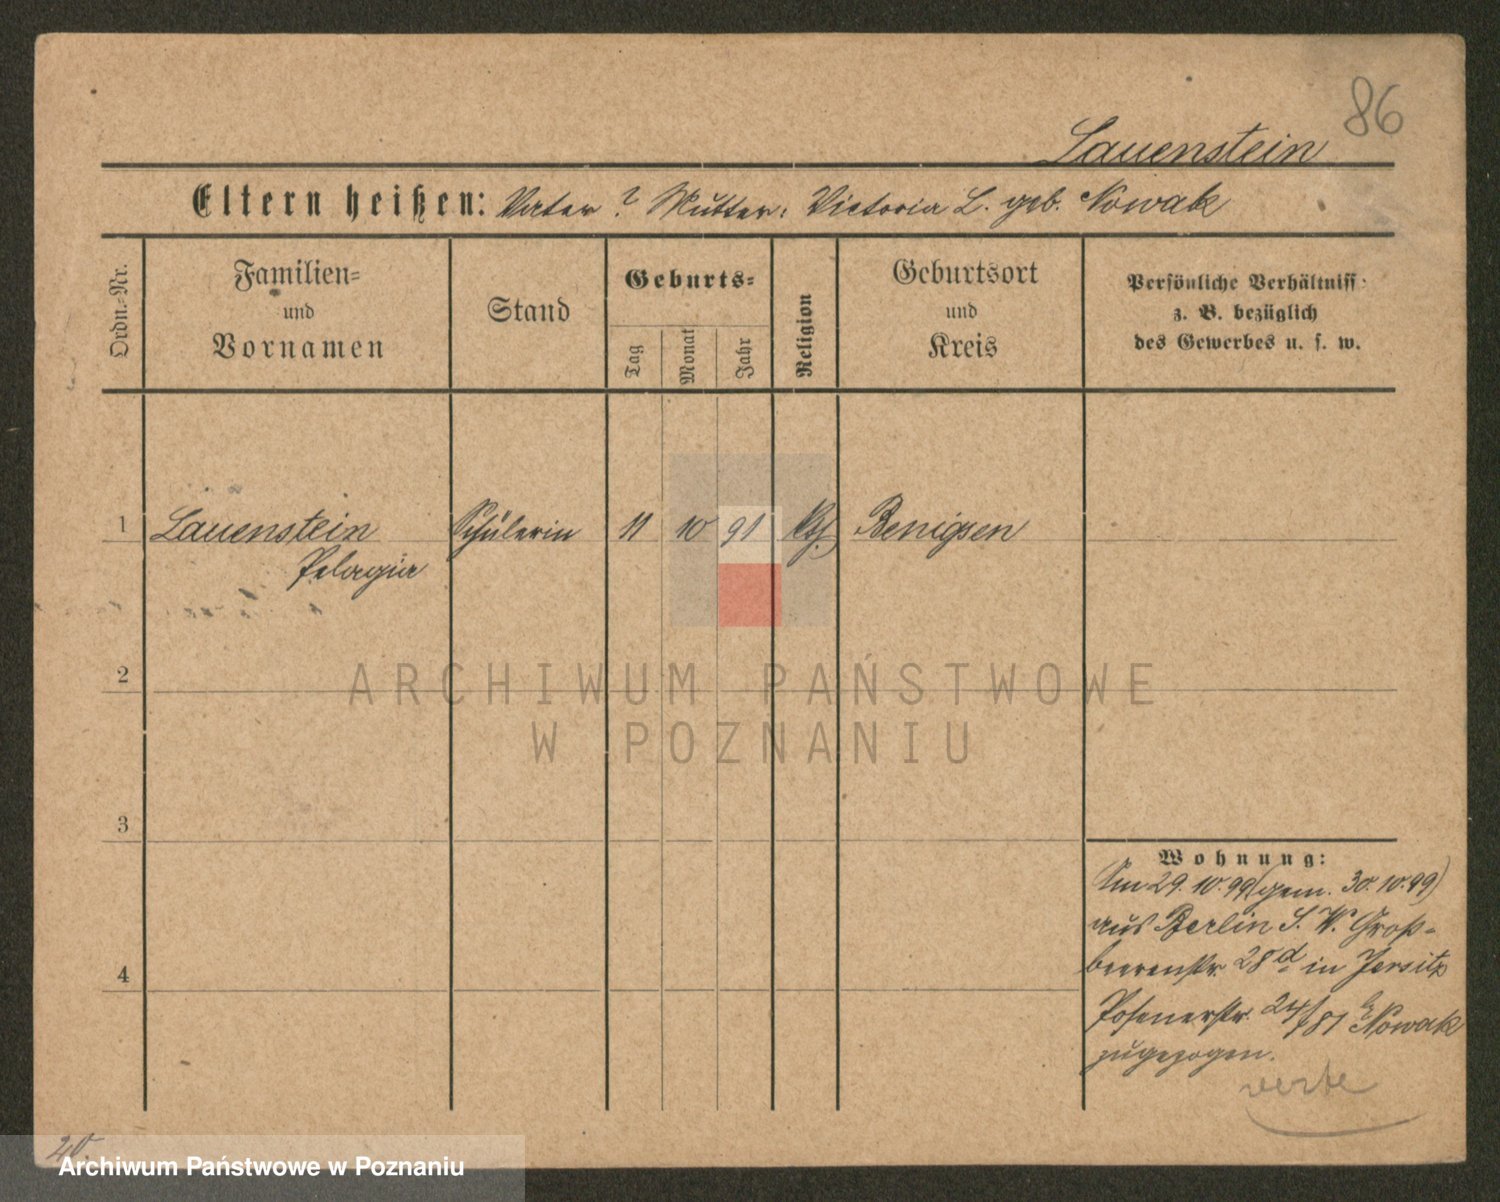 86
Lauenstein
Eltern heißen: Vater ? Mutter: Victoria L. geb. Nowak
Ordn.-Nr.
Familien-
und
Vornamen
Stand
Geburts-
Tag
Monat
Jahr
Religion
Geburtsort
und
Kreis
Persönliche Verhältniss
z. B. bezüglich
des Gewerbes u. s. w.
1 Lauenstein Schülerin 11 10 91 Kth. Benigsen
Pelagia
2
ARCHIWUM PAŃSTWOWE
W POZNANIU
3
4
Wohnung:
Am 29.10.99 (gem. 30.10.99)
aus Berlin S. W. Groß-
beerenstr. 28d in Jersitz
Posenerstr. 24/81 b. Nowak
zugezogen.
verte
Archiwum Państwowe w Poznaniu